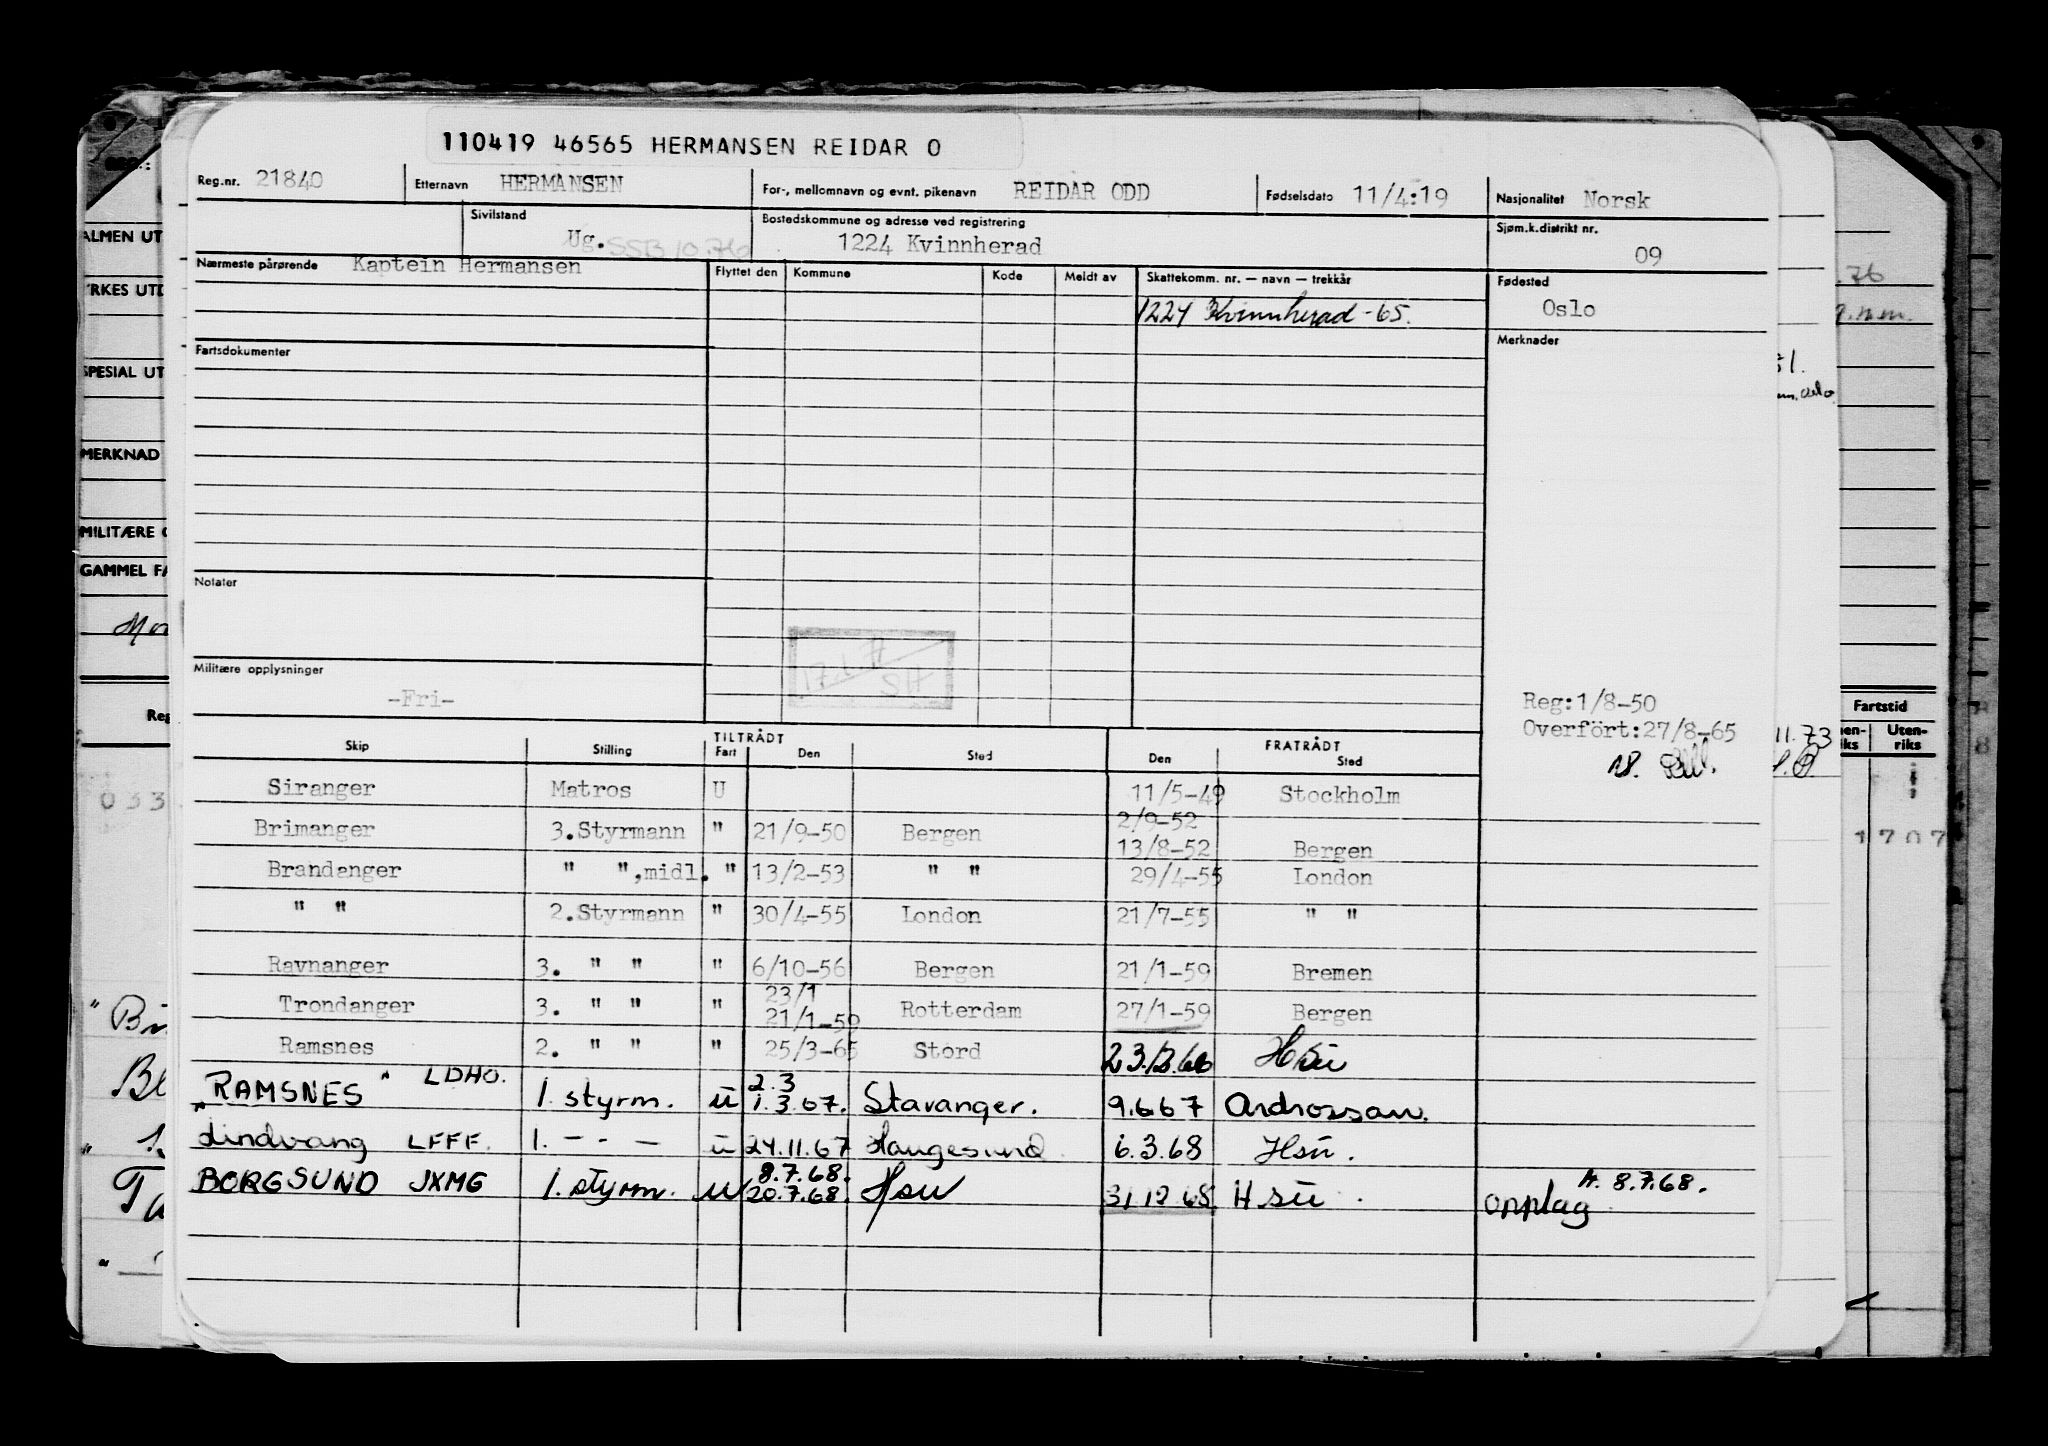 110419 46565 HERMANSEN REIDAR O
Reg.nr. 21840 Etternavn HERMANSEN For-, mellomnavn og evnt. pikenavn REIDAR ODD Fødselsdato 11/4:19 Nasjonalitet Norsk
Sivilstand Ug. SSB 10.76 Bostedskommune og adresse ved registrering 1224 Kvinnherad Sjøm.k.distrikt nr. 09
Nærmeste pårørende Kaptein Hermansen Flyttet den Kommune Kode Meldt av Skattekomm. nr. — navn — trekkår Fødested
1224 Kvinnherad -65. Oslo
Fartsdokumenter Merknader
Notater
17.1.7
SH
Militære opplysninger
-Fri-
Reg:1/8-50
Overfört:27/8-65
Skip Stilling TILTRÅDT Fart Den Sted FRATRÅDT Den Sted
Siranger Matros U 11/5-49 Stockholm
2/9-52
Brimanger 3.Styrmann " 21/9-50 Bergen 13/8-52 Bergen
Brandanger " ",midl. " 13/2-53 " " 29/4-55 London
" " 2.Styrmann " 30/4-55 London 21/7-55 " "
Ravnanger 3. " " " 6/10-56 Bergen 21/1-59 Bremen
23/1
Trondanger 3. " " " 21/1-59 Rotterdam 27/1-59 Bergen
Ramsnes 2. " " " 25/3-65 Stord Hsu
2.3
RAMSNES LDHO. 1. styrm. u 1.3.67. Stavanger. 9.6.67 Ardrossan.
Lindvang LFFF. 1. - - — u 24.11.67 Haugesund 6.3.68 Hsu.
8.7.68.
BORGSUND JXMG 1. styrm. u 20.7.68 Hsu 31.12.68 Hsu. Opplag A. 8.7.68.
ALMEN UT
YRKES UTD
SPESIAL UT
MERKNAD
MILITÆRE O
GAMMEL FA
Reg
033
.76
11.73
Fartstid
Uten-
riks
1707